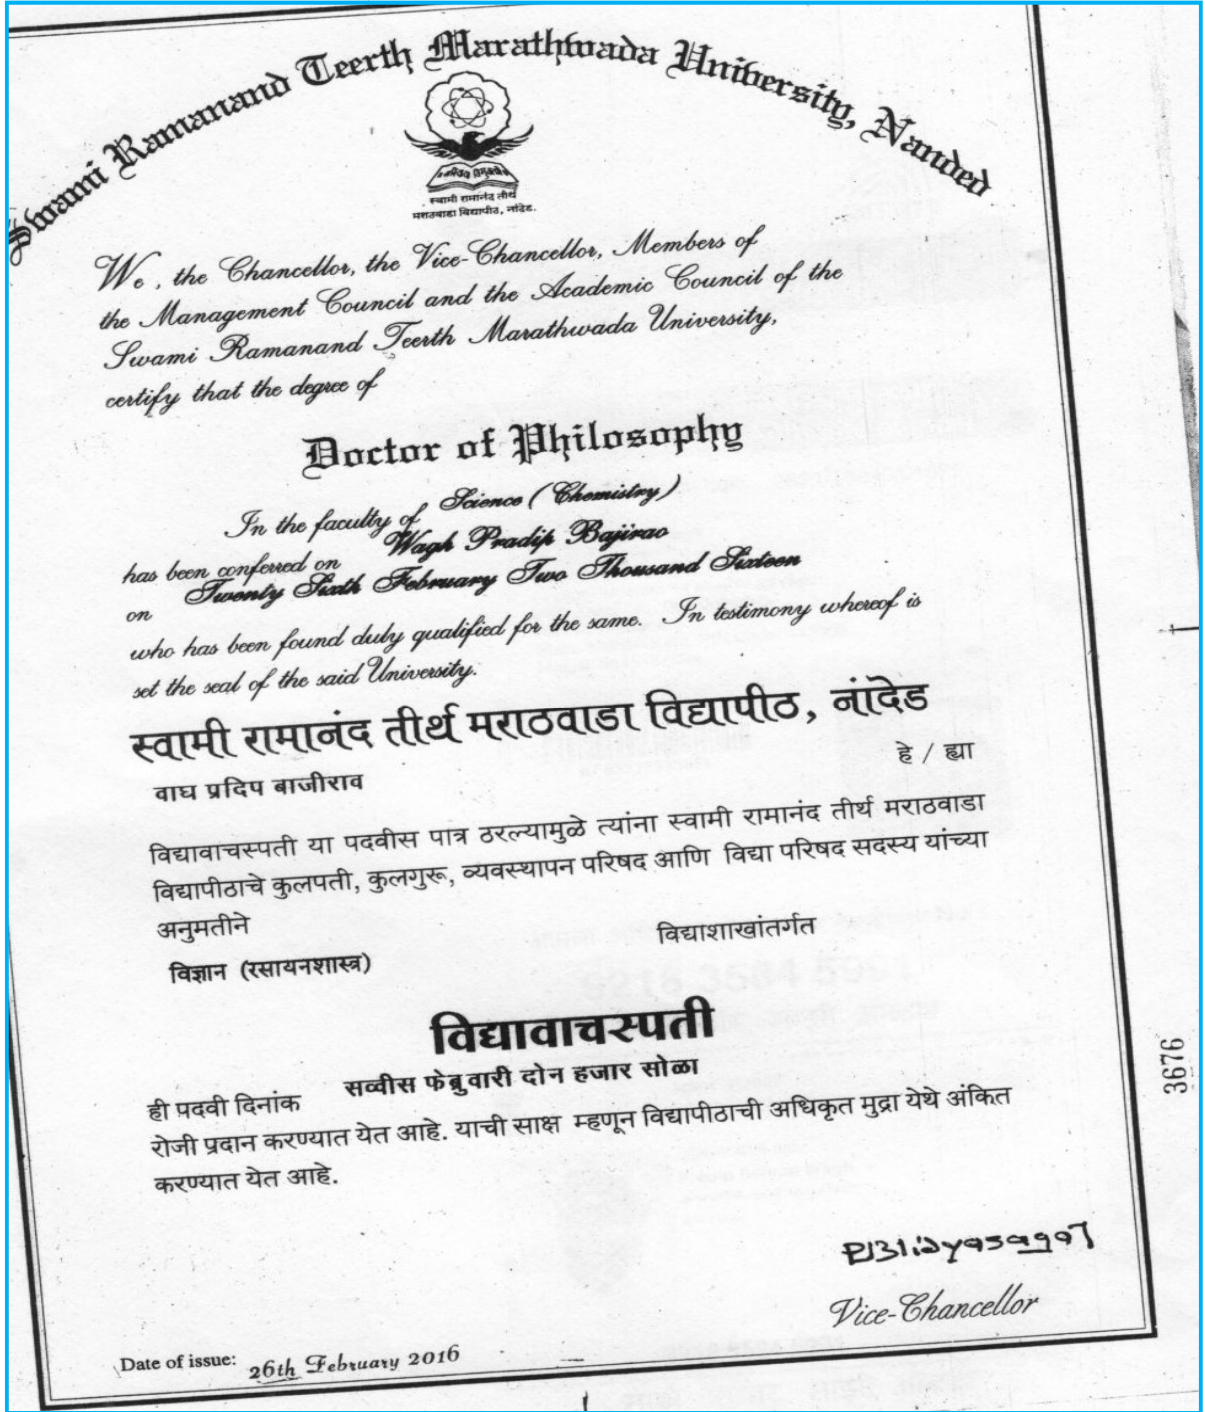 Swami Ramanand Teerth Marathwada University, Nanded
स्वामी रामानंद तीर्थ
मराठवाडा विद्यापीठ, नांदेड.
We, the Chancellor, the Vice-Chancellor, Members of
the Management Council and the Academic Council of the
Swami Ramanand Teerth Marathwada University,
certify that the degree of
Doctor of Philosophy
In the faculty of Science (Chemistry)
has been conferred on Wagh Pradip Bajirao
on Twenty Sixth February Two Thousand Sixteen
who has been found duly qualified for the same. In testimony whereof is
set the seal of the said University.
स्वामी रामानंद तीर्थ मराठवाडा विद्यापीठ, नांदेड
वाघ प्रदिप बाजीराव हे / ह्या
विद्यावाचस्पती या पदवीस पात्र ठरल्यामुळे त्यांना स्वामी रामानंद तीर्थ मराठवाडा
विद्यापीठाचे कुलपती, कुलगुरू, व्यवस्थापन परिषद आणि विद्या परिषद सदस्य यांच्या
अनुमतीने विद्याशाखांतर्गत
विज्ञान (रसायनशास्त्र)
विद्यावाचस्पती
ही पदवी दिनांक सव्वीस फेब्रुवारी दोन हजार सोळा
रोजी प्रदान करण्यात येत आहे. याची साक्ष म्हणून विद्यापीठाची अधिकृत मुद्रा येथे अंकित
करण्यात येत आहे.
Vice-Chancellor
Date of issue: 26th February 2016
3676